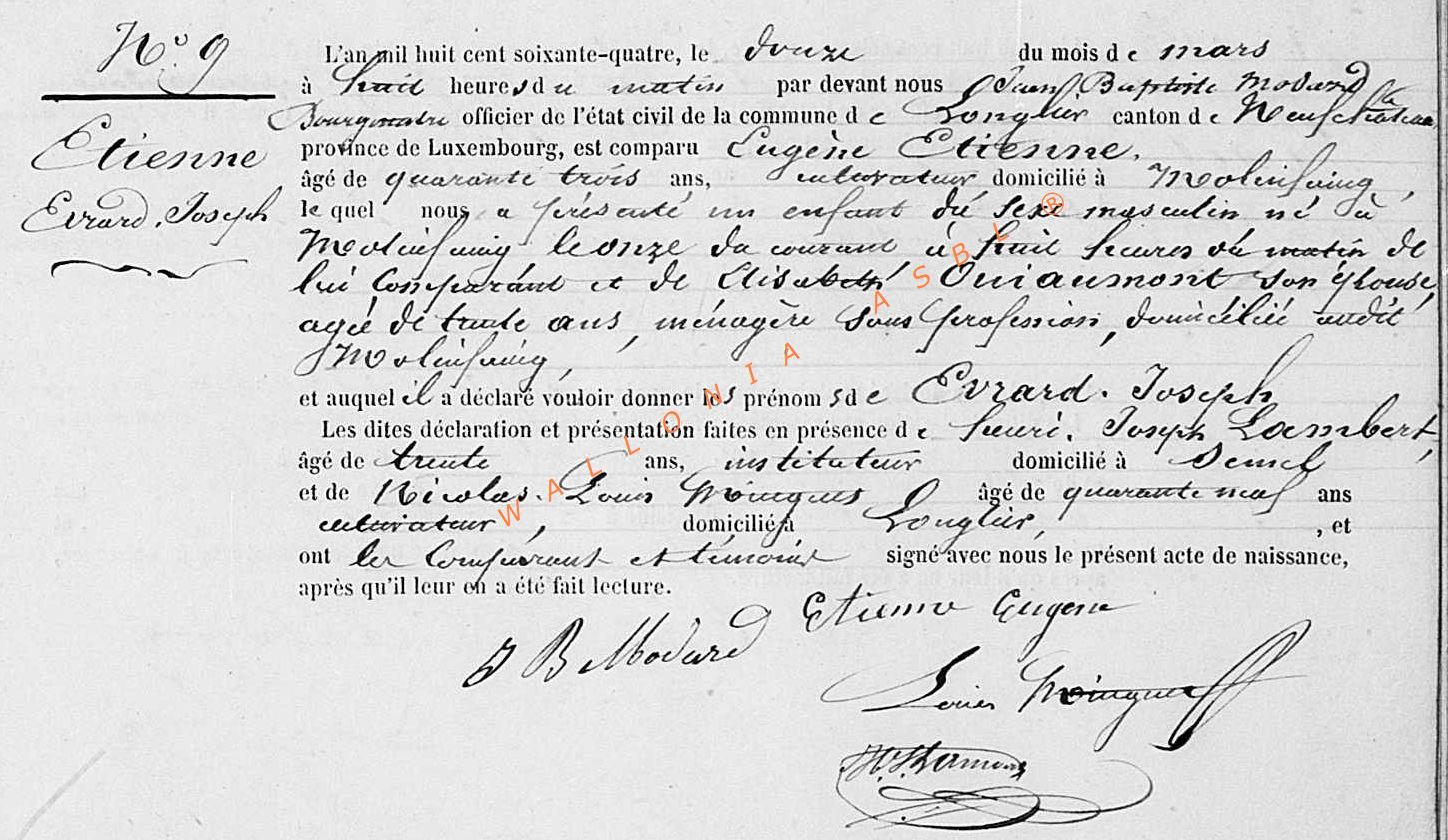 N.º 9
Etienne
Evrard. Joseph
L'an mil huit cent soixante-quatre, le douze du mois de mars
à huit heures du matin par devant nous Jean Baptiste Modard
Bourgmestre officier de l'état civil de la commune de Longlier canton de Neufchâteau
province de Luxembourg, est comparu Eugène Etienne.
âgé de quarante trois ans, cultivateur, domicilié à Molinfaing,
lequel nous a présenté un enfant du sexe masculin né à
Molinfaing le onze du courant, à huit heures du matin de
lui Comparant et de Elisabeth Ouiaumont son épouse,
agée de trente ans, ménagère sans profession, domiciliée audit
Molinfaing,
et auquel il a déclaré vouloir donner les prénoms de Evrard. Joseph
Les dites déclaration et présentation faites en présence de henri. Joseph Lambert,
âgé de trente ans, instituteur domicilié à Semel
et de Nicolas. Louis âgé de quarante neuf ans
cultivateur, domicilié à Longlier, , et
ont les Comparant et témoins signé avec nous le présent acte de naissance,
après qu'il leur en a été fait lecture.
Etienne Eugene
J B Modard
Louis
WALLONIA ASBL ®